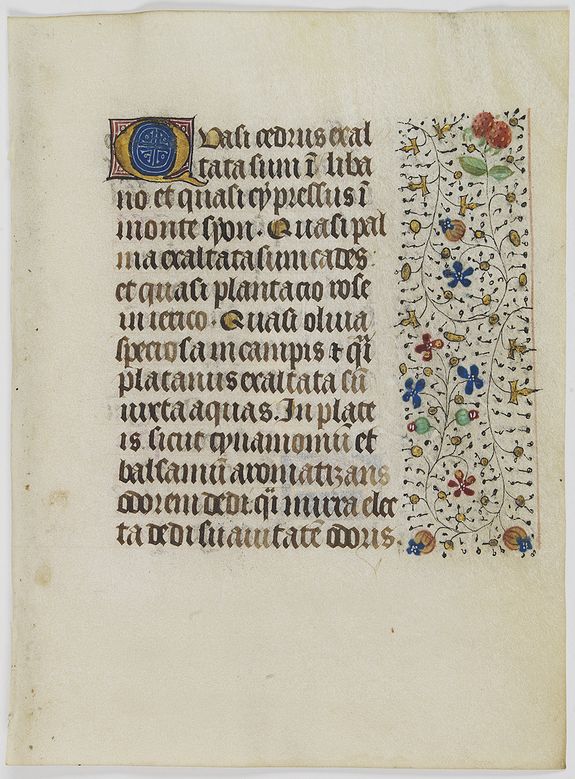 Quasi cedrus exal
tata sum ī liba
no et quasi cypressus ī
monte syon. Quasi pal
ma exaltata sum cades
et quasi plantacio rose
in ierico. Quasi oliua
speciosa in campis ⁊ q̄i
platanus exaltata sū
iuxta aquas. In plate
is sicut cynamomū et
balsamū aromatizans
odorem dedi: q̄i mirra elec
ta dedi suauitatē odoris.